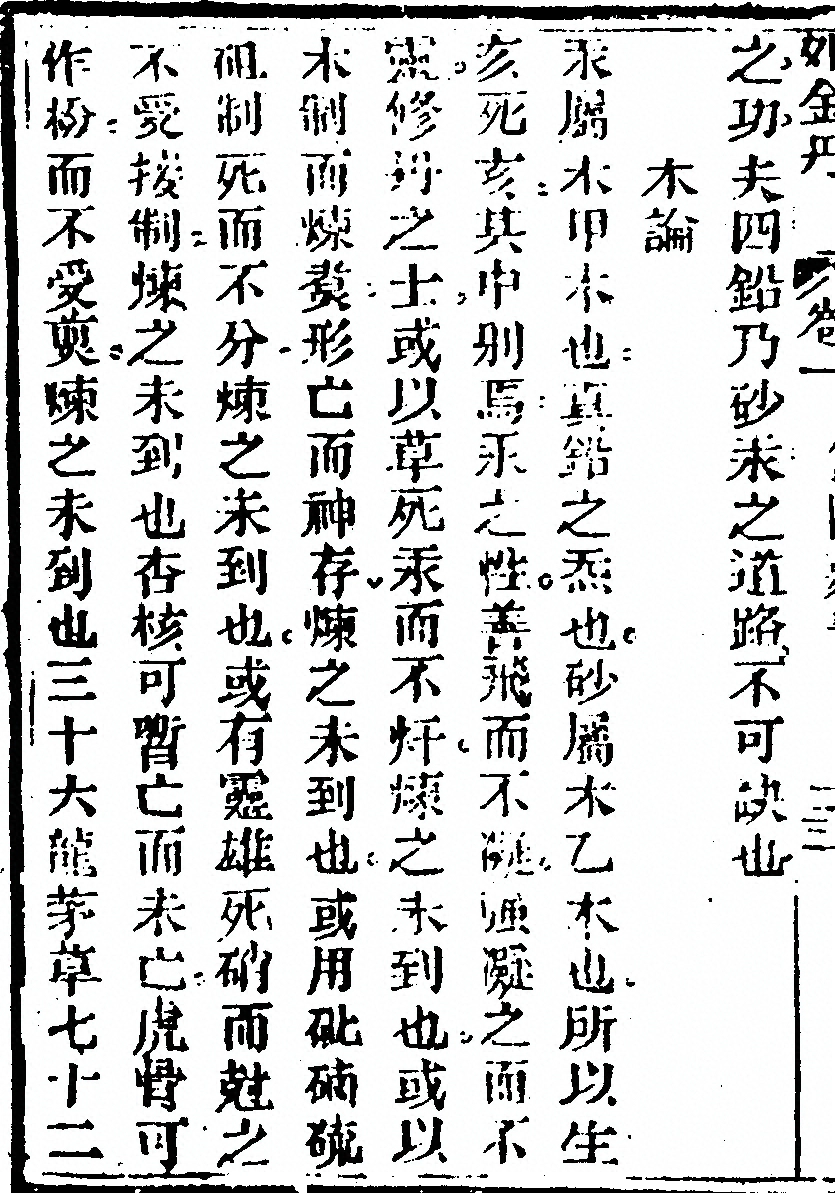 之功夫四鉛乃砂汞之道路不可缺也
木論
汞屬木甲木也真鉛之炁也砂屬木乙木也所以生
亥死亥其中別焉汞之性善飛而不凝強凝之而不
靈修丹之士或以草死汞而不奸煉之未到也或以
木制而煉發形亡而神存煉之未到也或用砒硇硫
砠制死而不分煉之未到也或有靈雄死硝而尅之
不受接制煉之未到也杏核可暫亡而未亡虎骨可
作粉而不受煎煉之未到也三十六龍茅草七十二